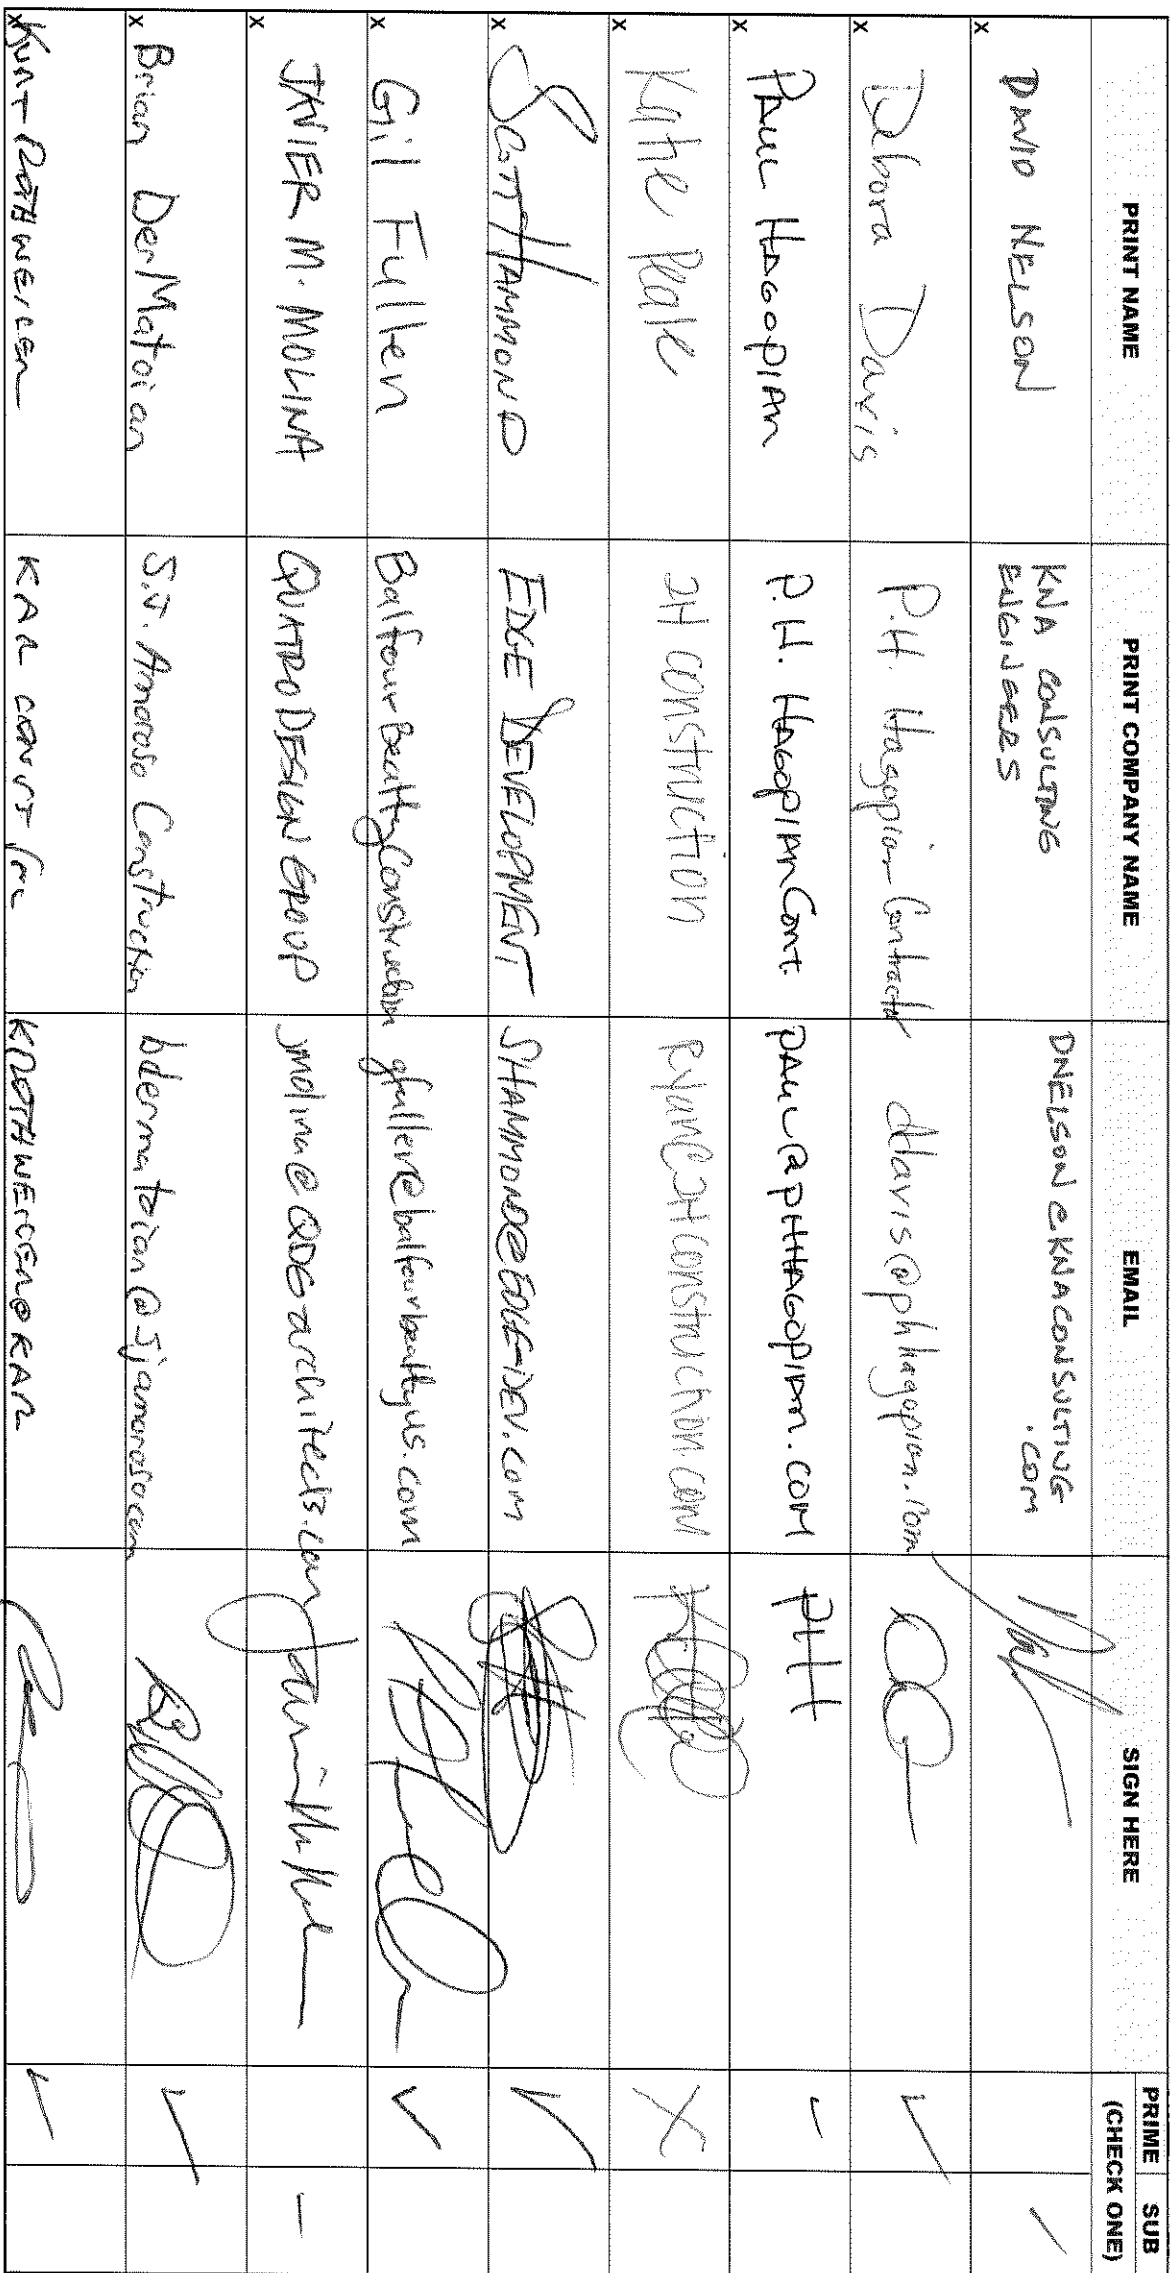 PRINT NAME PRINT COMPANY NAME EMAIL SIGN HERE PRIME SUB
(CHECK ONE)
x DAVID NELSON KNA CONSULTING ENGINEERS DNELSON@KNACONSULTING.COM
x Debora Davis P.H. Hagopian Contractor ddavis@phhagopian.com
x PAUL HAGOPIAN P.H. HAGOPIAN Cont. PAUL@PHHAGOPIAN.COM PHH
x Katie Peale 2H Construction Ryan@2Hconstruction.com
x SCOTT HAMMOND EDGE DEVELOPMENT SHAMMOND@EDGE-DEV.com
x Gil Fuller Balfour Beatty Construction gfuller@balfourbeattyus.com
x JAVIER M. MOLINA QUATRO DESIGN GROUP jmolina@QDGarchitects.com
x Brian DerMatoian S.J. Amoroso Construction bdermatoian@sjamoroso.com
x KURT ROTHWEILER KAR CONST Inc KROTHWEILER@KAR